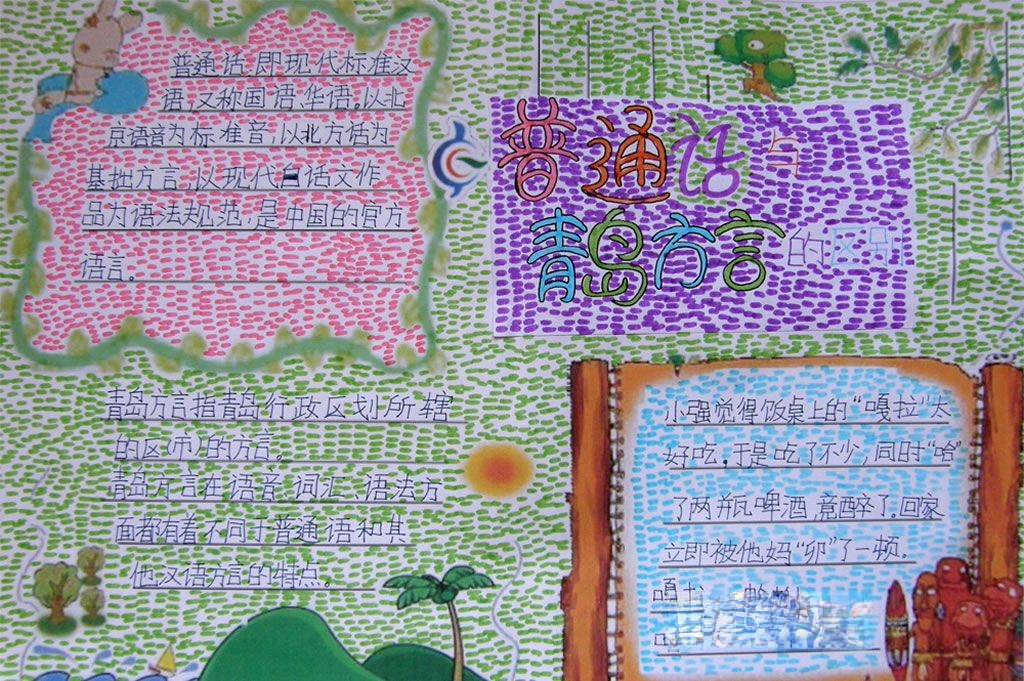 普通话与
青岛方言的区别
普通话,即现代标准汉
语,又称国语、华语。以北
京语音为标准音,以北方话为
基础方言,以现代白话文作
品为语法规范,是中国的官方
语言。
青岛方言指青岛行政区划所辖
的区(市)的方言。
青岛方言在语音、词汇、语法方
面都有着不同于普通语和其
他汉语方言的特点。
小强觉得饭桌上的“嘎拉”太
好吃,于是吃了不少,同时“哈”
了两瓶啤酒,竟醉了。回家
立即被他妈“卯”了一顿。
嘎拉